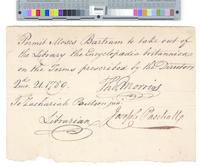 Permit Moses Bartram to take out of
the Library the Encyclopædia britannica
on the Terms prescribed by the Directors
21. 1780.
Tho. Morris
To Zachariah Poulson junr.
Librarian
Joseph Paschall